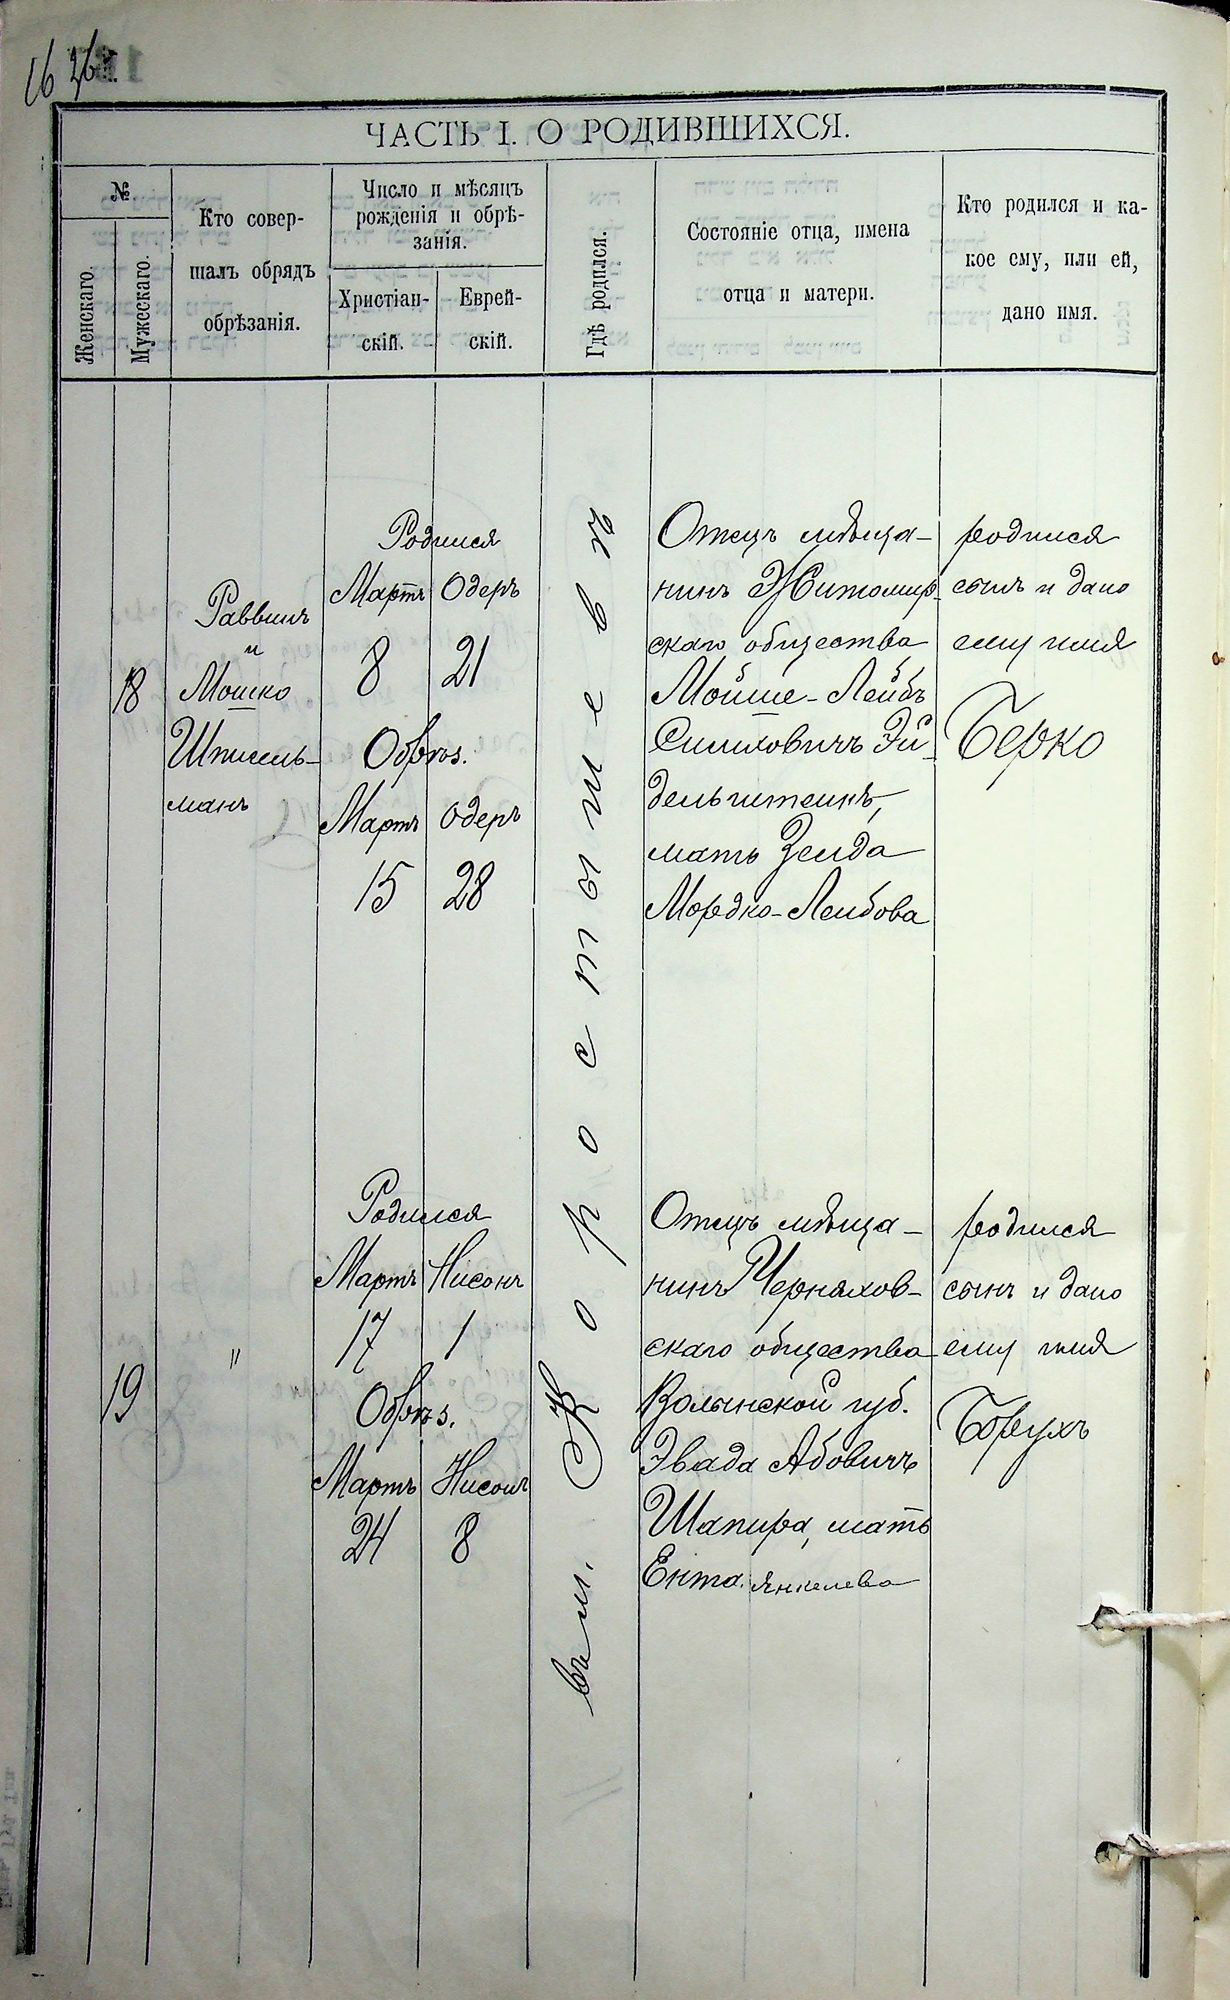 16
ЧАСТЬ I. О РОДИВШИХСЯ.
№
Женскаго.
Мужескаго.
Кто совер-
шалъ обрядъ
обрѣзанія.
Число и мѣсяцъ
рожденія и обрѣ-
занія.
Христіан-
скій.
Еврей-
скій.
Гдѣ родился.
Состояніе отца, имена
отца и матери.
Кто родился и ка-
кое ему, или ей,
дано имя.
18
Раввинъ
и
Мошко
Шписель-
манъ
Родился
Мартъ Одеръ
8 21
Обрѣз.
Мартъ Одеръ
15 28
въ м. Коростышевѣ
Отецъ мѣща-
нинъ Житомир-
скаго общества
Мойше-Лейбъ
Симховичъ Эй-
дельштейнъ,
мать Зелда
Мордко-Лейбова
родился
сынъ и дано
ему имя
Берко
19
"
Родился
Мартъ Нисонъ
17 1
Обрѣз.
Мартъ Нисонъ
24 8
Отецъ мѣща-
нинъ Черняхов-
скаго общества
Волынской губ.
Эвада Абовичъ
Шапира, мать
Ента Янкелева
родился
сынъ и дано
ему имя
Борухъ